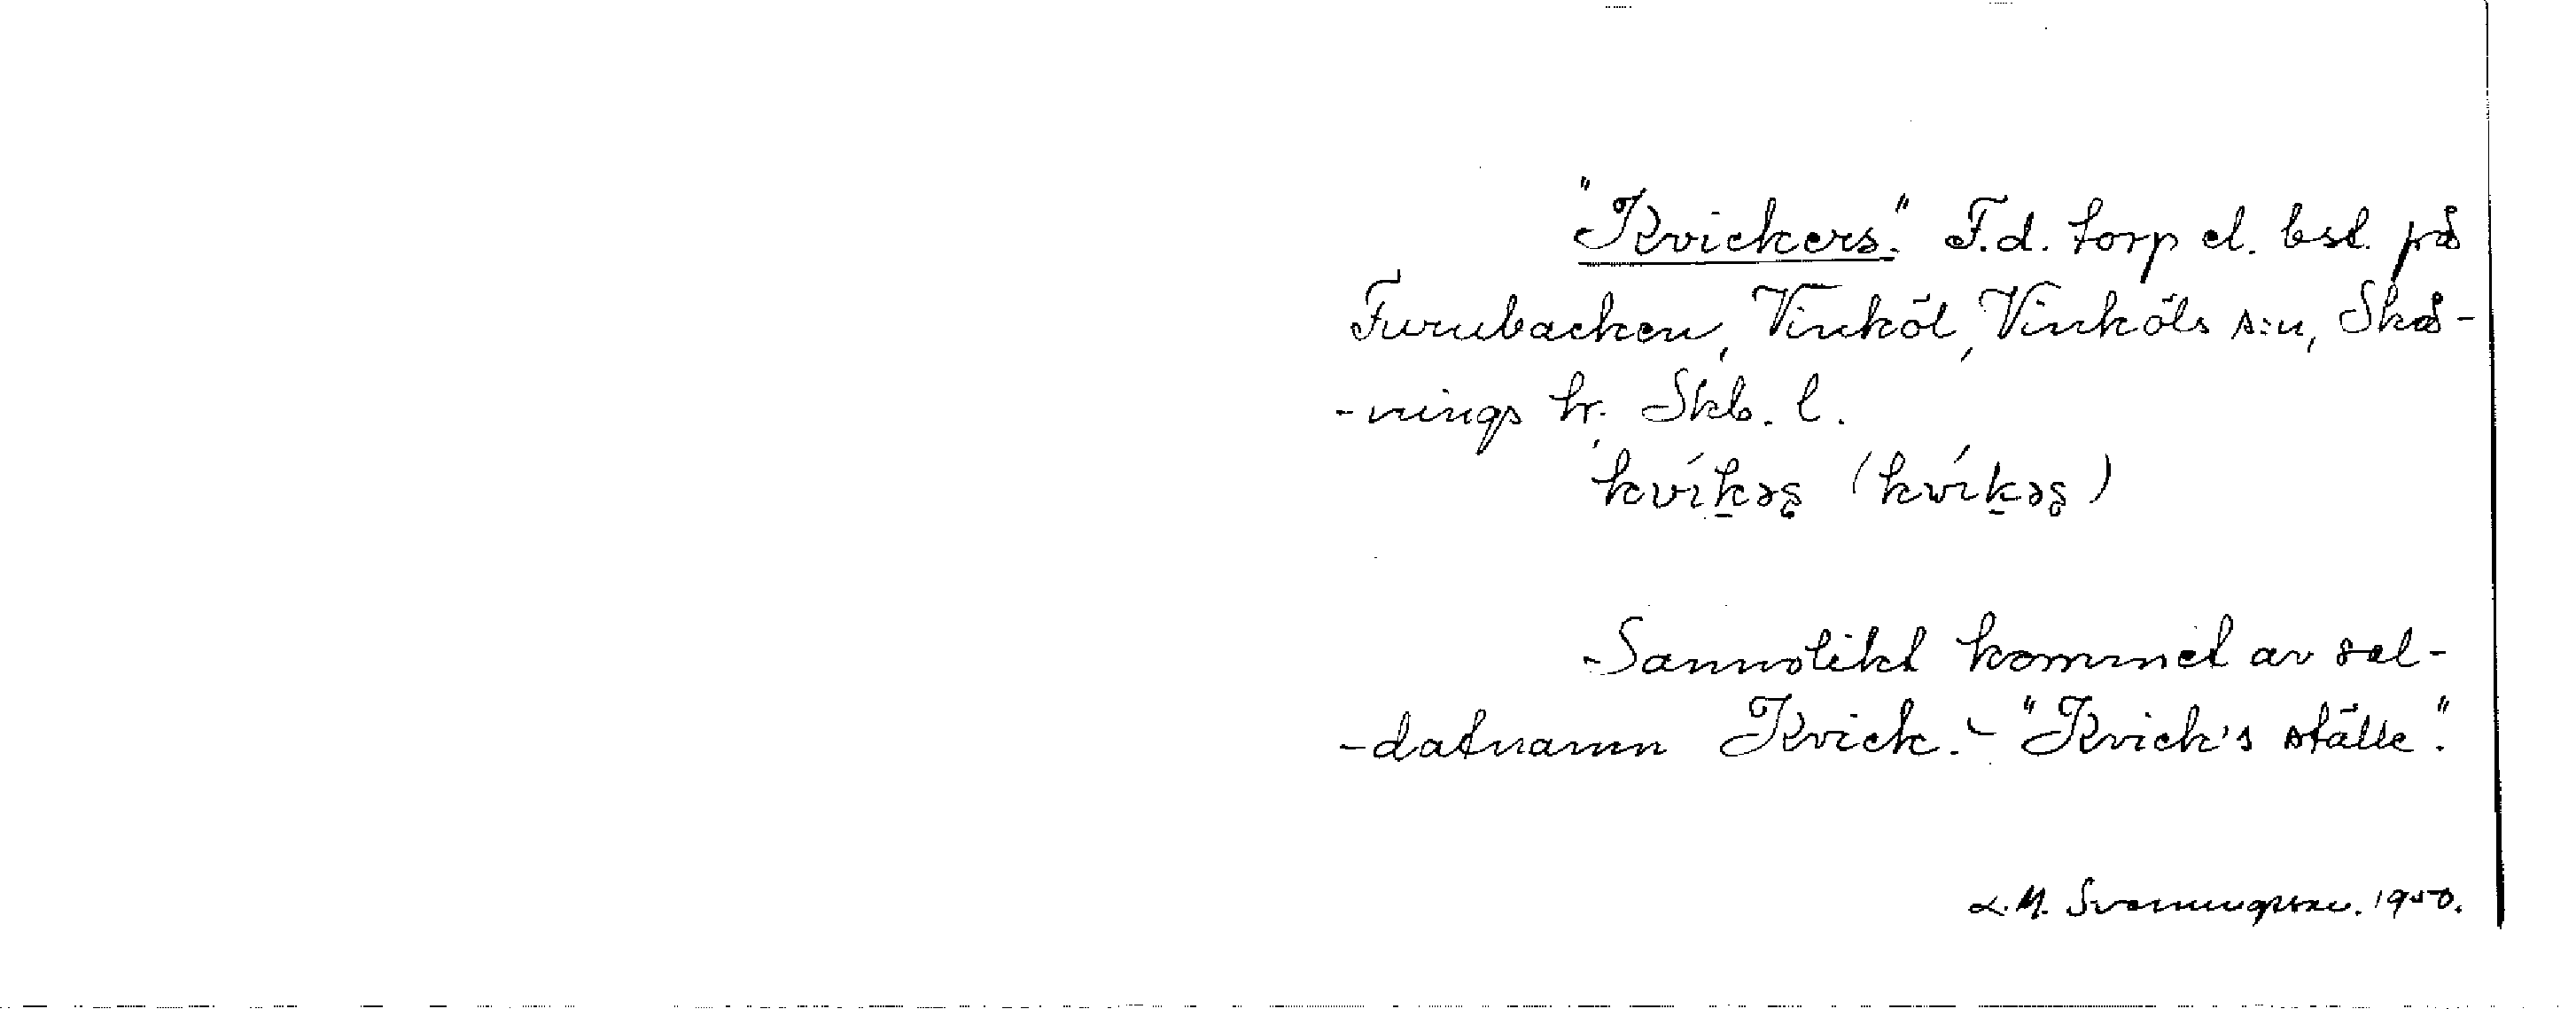 "Kvickers." F.d. torp el. bst. på
Furubacken, Vinköl, Vinköls s:n, Skå-
-nings hr. Skb. l.
kvíḵəʂ (kwíḵəʂ)
-Sannolikt kommet av sol-
-datnamn Kvick. - "Kvick's ställe".
L.M. Svenungsson. 1950.